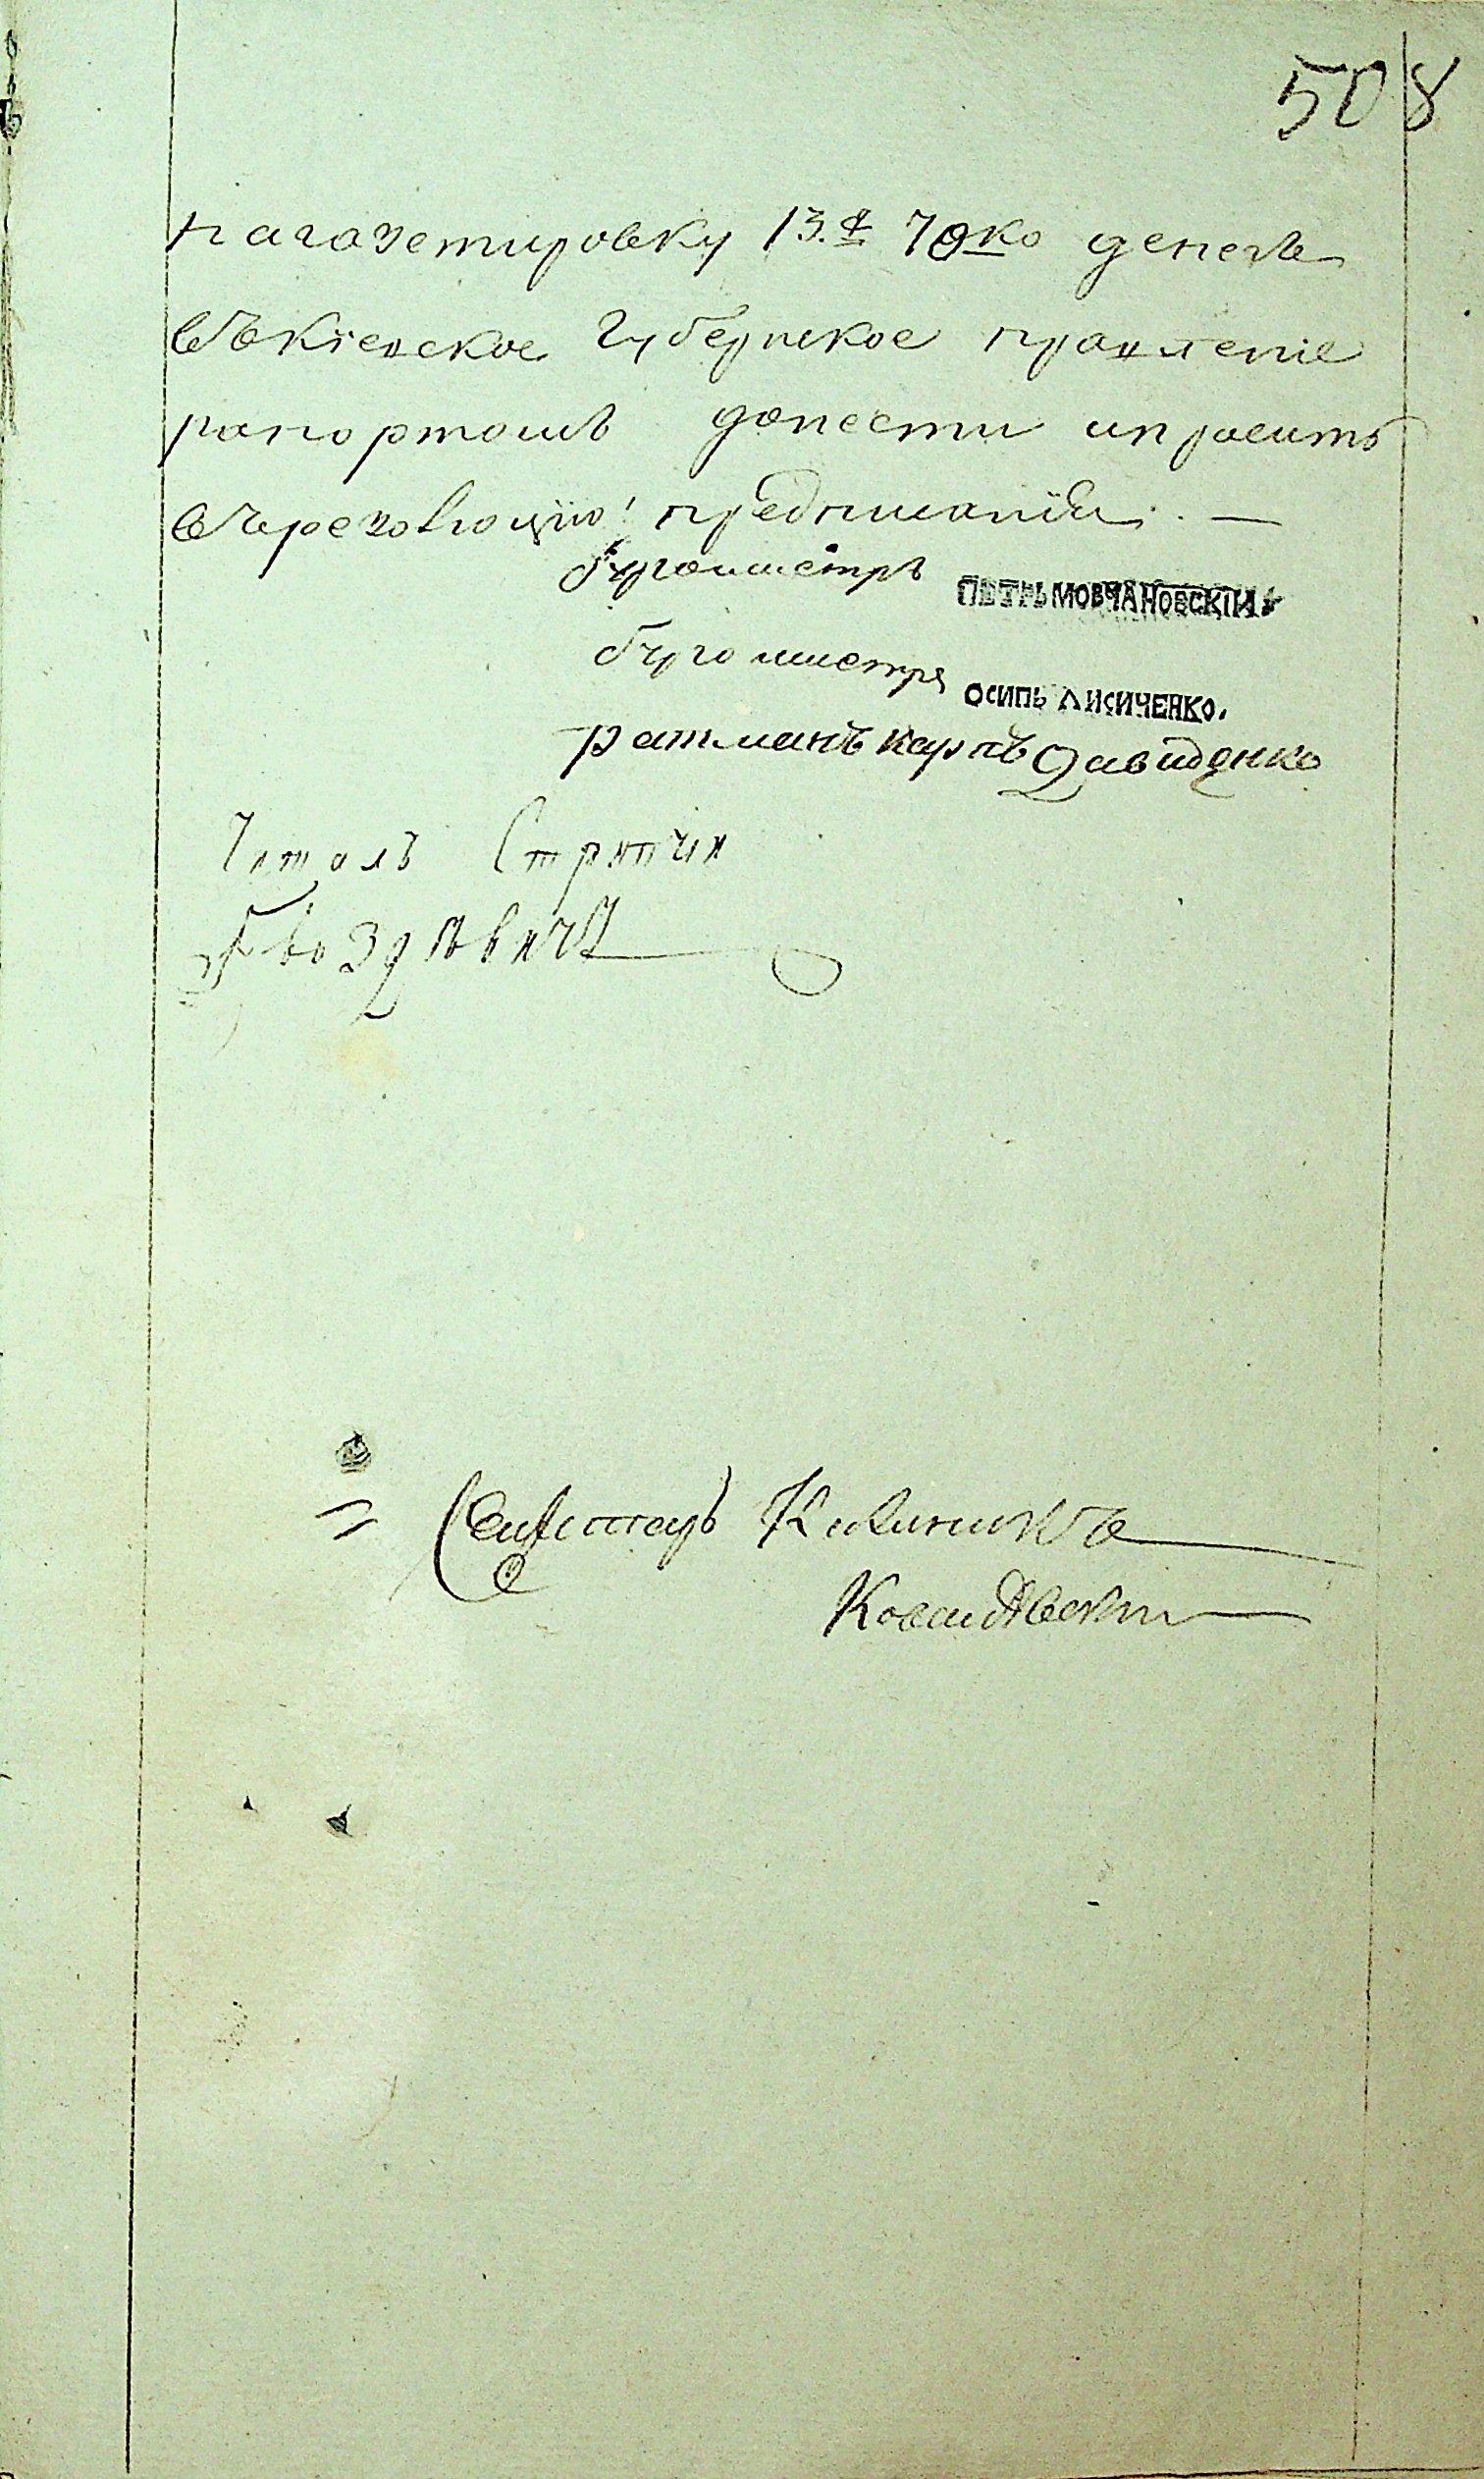 508
нагазетировку 13.р. 70 ко денегъ
въкіевское Губернское правленіе
рапортомъ донести ипросить
въ резолюцію предписанія. —
бургомистръ ПЕТРЪ МОВЧАНОВСКІИ
бургомистръ ОСИПЬ ЛИСИЧЕНКО.
ратманъ карпъ Давиденко
Читалъ Стряпчи
Гвоздѣвичъ